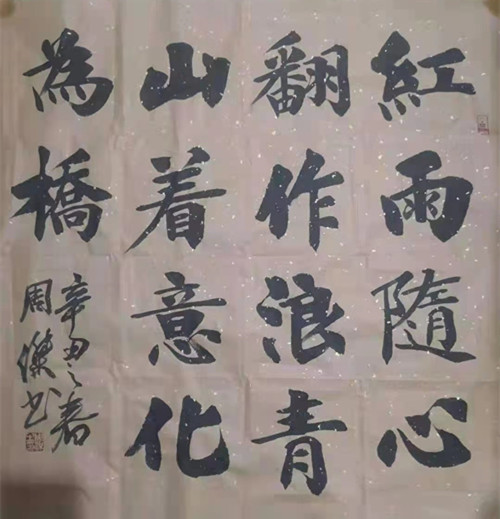 紅雨隨心
翻作浪青
山着意化
為橋
辛丑之春
周傑书